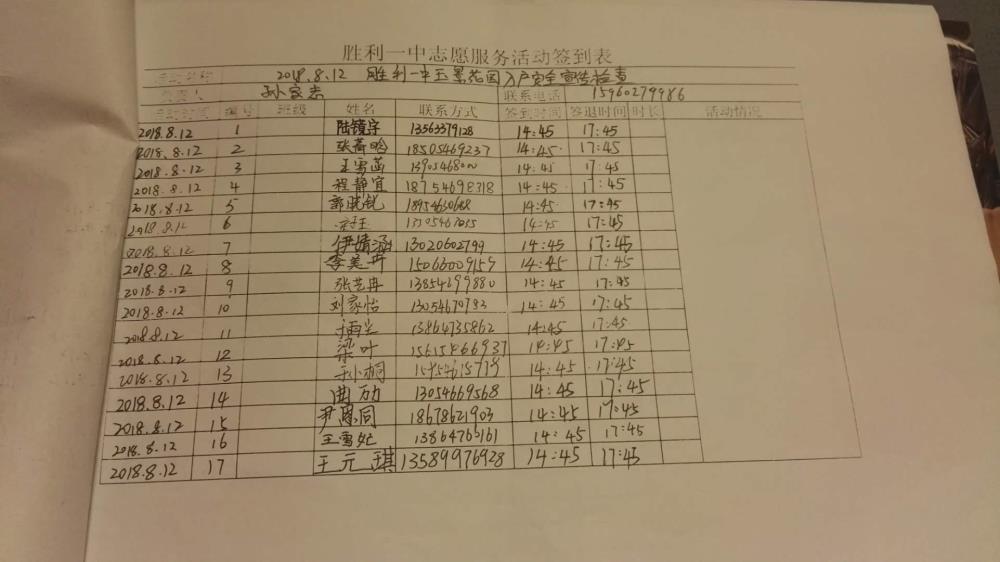 胜利一中志愿服务活动签到表
活动名称 2018.8.12 胜利一中玉景花园入户安全宣传检查
负责人 孙家志 联系电话 15960279986
活动时间 编号 班级 姓名 联系方式 签到时间 签退时间 时长 活动情况
2018.8.12 1 陆镜宇 13563379128 14:45 17:45
2018.8.12 2 18505469237 14:45 17:45
2018.8.12 3 王雪菡 14:45 17:45
2018.8.12 4 程静宜 18754698318 14:45 17:45
2018.8.12 5 14:45 17:45
2018.8.12 6 14:45 17:45
2018.8.12 7 伊婧涵 13020602799 14:45 17:45
2018.8.12 8 李美冉 15066009159 14:45 17:45
2018.8.12 9 张艺冉 13854699880 14:45 17:45
2018.8.12 10 刘家怡 14:45 17:45
2018.8.12 11 13864735862 14:45 17:45
2018.8.12 12 梁叶 15615466937 14:45 17:45
2018.8.12 13 于小桐 14:45 17:45
2018.8.12 14 13054669568 14:45 17:45
2018.8.12 15 18678621903 14:45 17:45
2018.8.12 16 14:45 17:45
2018.8.12 17 王元琪 13589976928 14:45 17:45